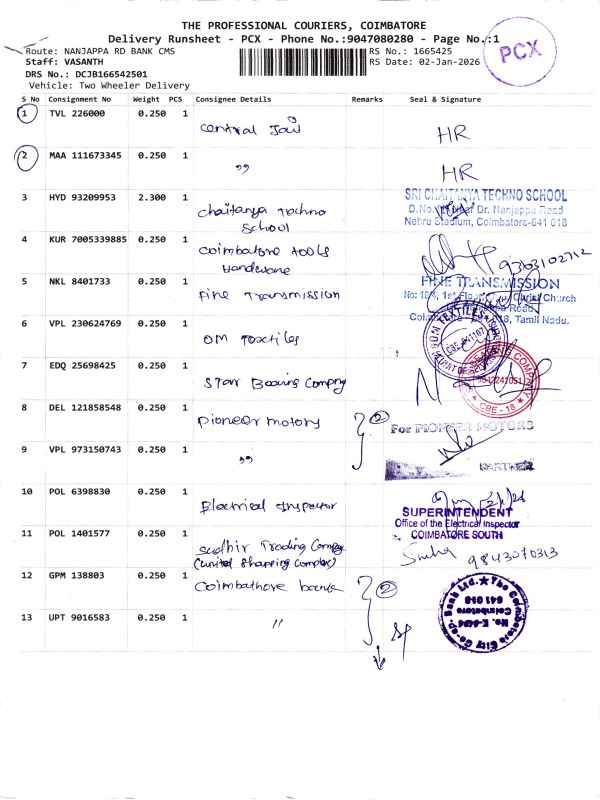 THE PROFESSIONAL COURIERS, COIMBATORE
Delivery Runsheet - PCX - Phone No.:9047080280 - Page No.:1
PCX
Route: NANJAPPA RD BANK CMS
RS No.: 1665425
Staff: VASANTH
RS Date: 02-Jan-2026
DRS No.: DCJB166542501
Vehicle: Two Wheeler Delivery
S No Consignment No Weight PCS Consignee Details Remarks Seal & Signature
1 TVL 226000 0.250 1 Central Jail HR
2 MAA 111673345 0.250 1 " HR
3 HYD 93209953 2.300 1 chaitanya Techno School
SRI CHAITANYA TECHNO SCHOOL
Dr. Nanjappa Road
Nehru Stadium, Coimbatore-641 018
4 KUR 7005339885 0.250 1 Coimbatore tools Handware
9363102712
5 NKL 8401733 0.250 1 Fine Transmission
FINE TRANSMISSION
Christ Church
Road
18, Tamil Nadu.
6 VPL 230624769 0.250 1 OM Textiles
OM TEXTILES
7 EDQ 25698425 0.250 1 Star Bearing Company
BEARING COMPANY
CBE - 18
8 DEL 121858548 0.250 1 Pioneer motors 2
For PIONEER MOTORS
9 VPL 973150743 0.250 1 "
PARTNER
10 POL 6398830 0.250 1 Electrical Inspector
SUPERINTENDENT
Office of the Electrical Inspector
COIMBATORE SOUTH
11 POL 1401577 0.250 1 Sudhir Trading Company
(United Shopping Complex)
9843070313
12 GPM 138803 0.250 1 Coimbathore bank 2
The Coimbatore City Co-op. Bank Ltd.
Coimbatore
641 018
13 UPT 9016583 0.250 1 "